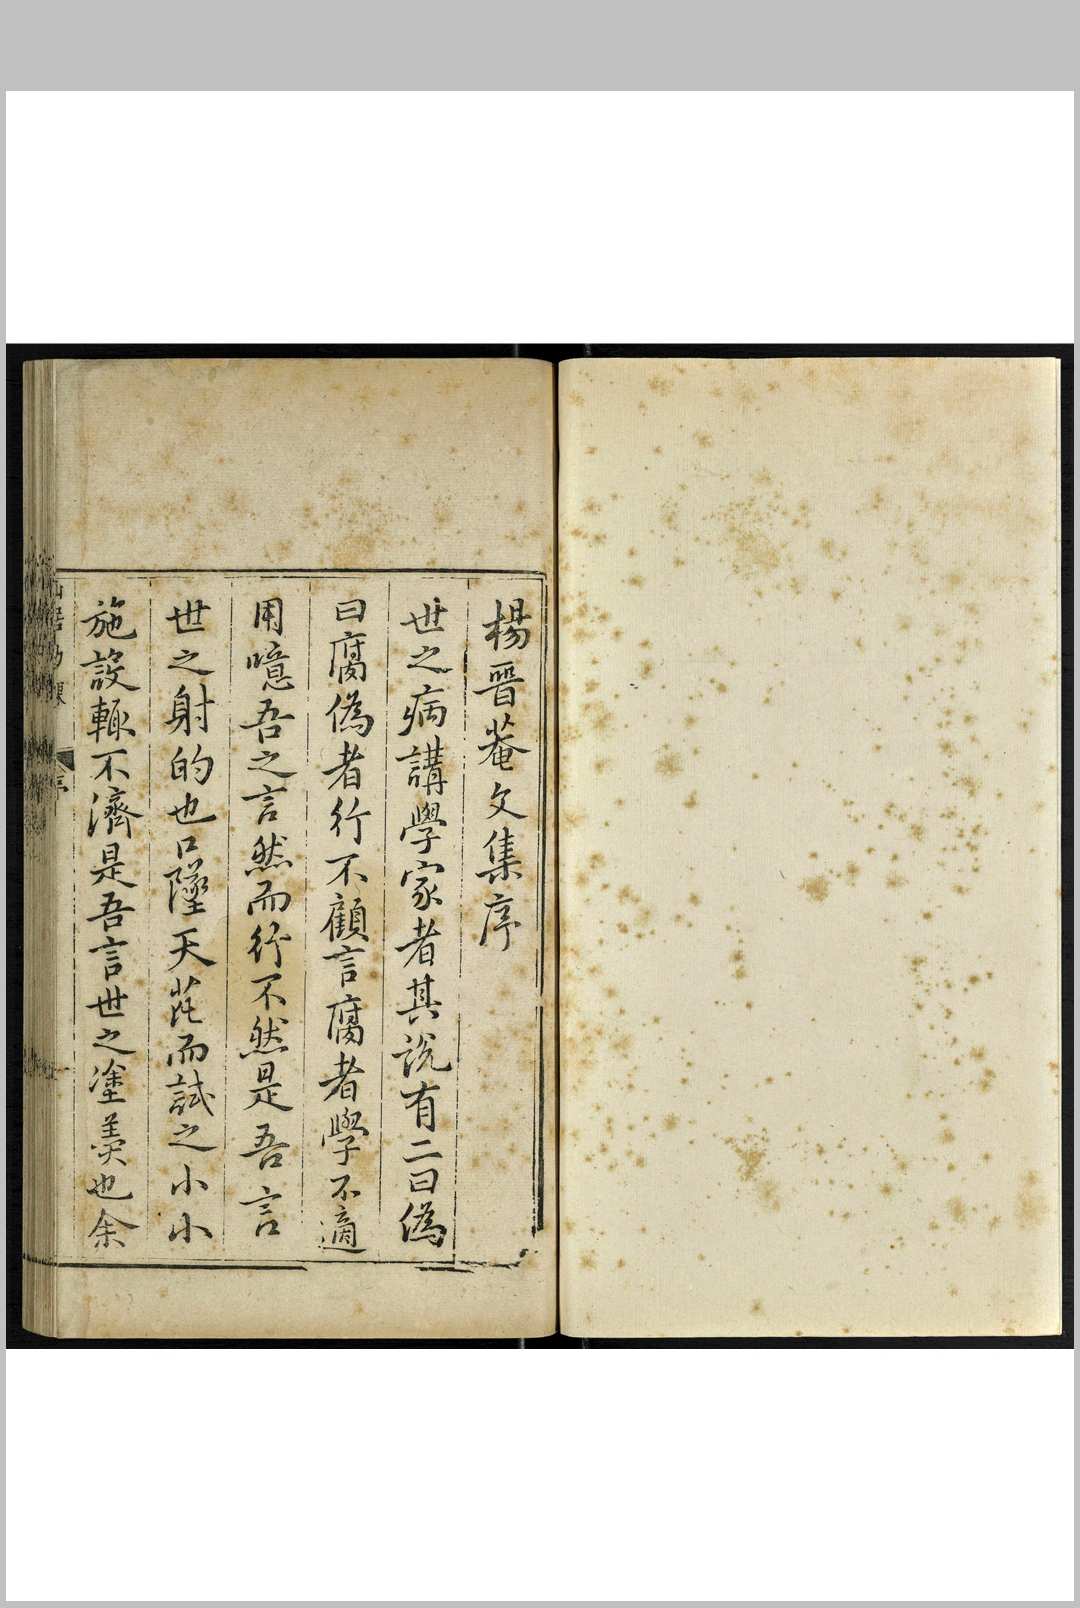 楊晉菴文集序
世之病講學家者其説有二曰偽
曰腐偽者行不顧言腐者學不適
用噫吾之言然而行不然是吾言
世之射的也口墜天花而試之小小
施設輒不濟是吾言世之塗羹也余
山居功課
序